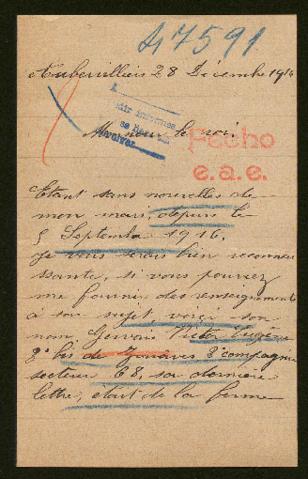 47591
Aubervilliers 28 Décembre 1916
Monsieur le roi
Fecho
e.a.e.
Etant sans nouvelles de
mon mari, depuis le
5 Septembre 1916.
Je vous serais bien reconnais
sante, si vous pouviez
me fournir des renseignements
à son sujet, voici son
nom, Gervais Victor Eugène
2e bis de Zouaves 3e compagnie
secteur 68, sa dernière
lettre, étant de la ferme